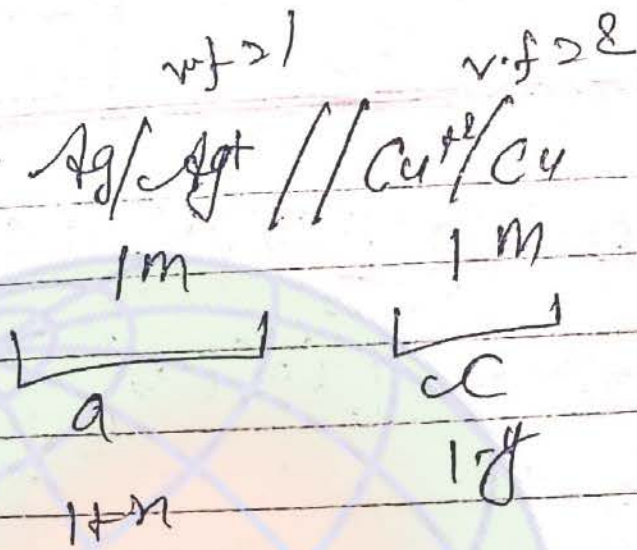 v.f = 1 v.f = 2
Ag/Ag+ // Cu+2/Cu
1M 1M
a C
1+x 1-y